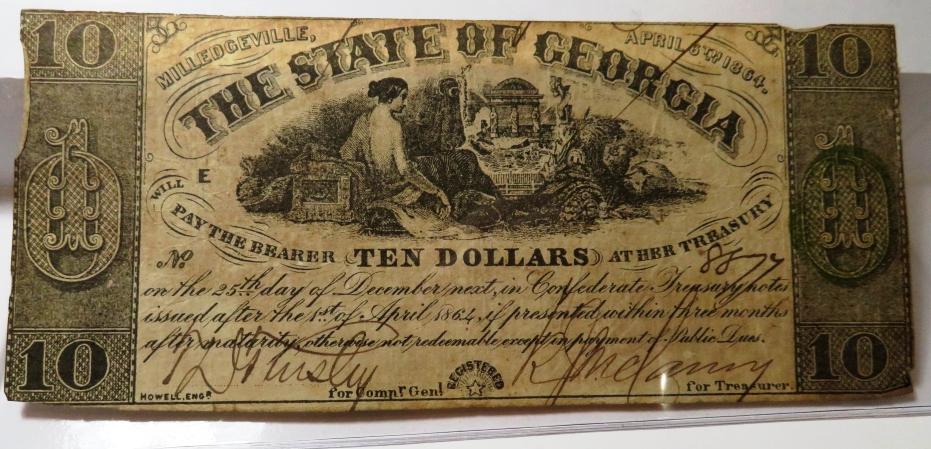 10
10
MILLEDGEVILLE,
APRIL 6TH 1864.
THE STATE OF GEORGIA
E
WILL
PAY THE BEARER TEN DOLLARS AT HER TREASURY
No
on the 25th day of December next, in Confederate Treasury notes
issued after the 1st of April 1864, if presented within three months
after maturity, otherwise not redeemable except in payment of Public Dues.
10
10
for Compr Genl
REGISTERED
for Treasurer.
HOWELL, ENGR